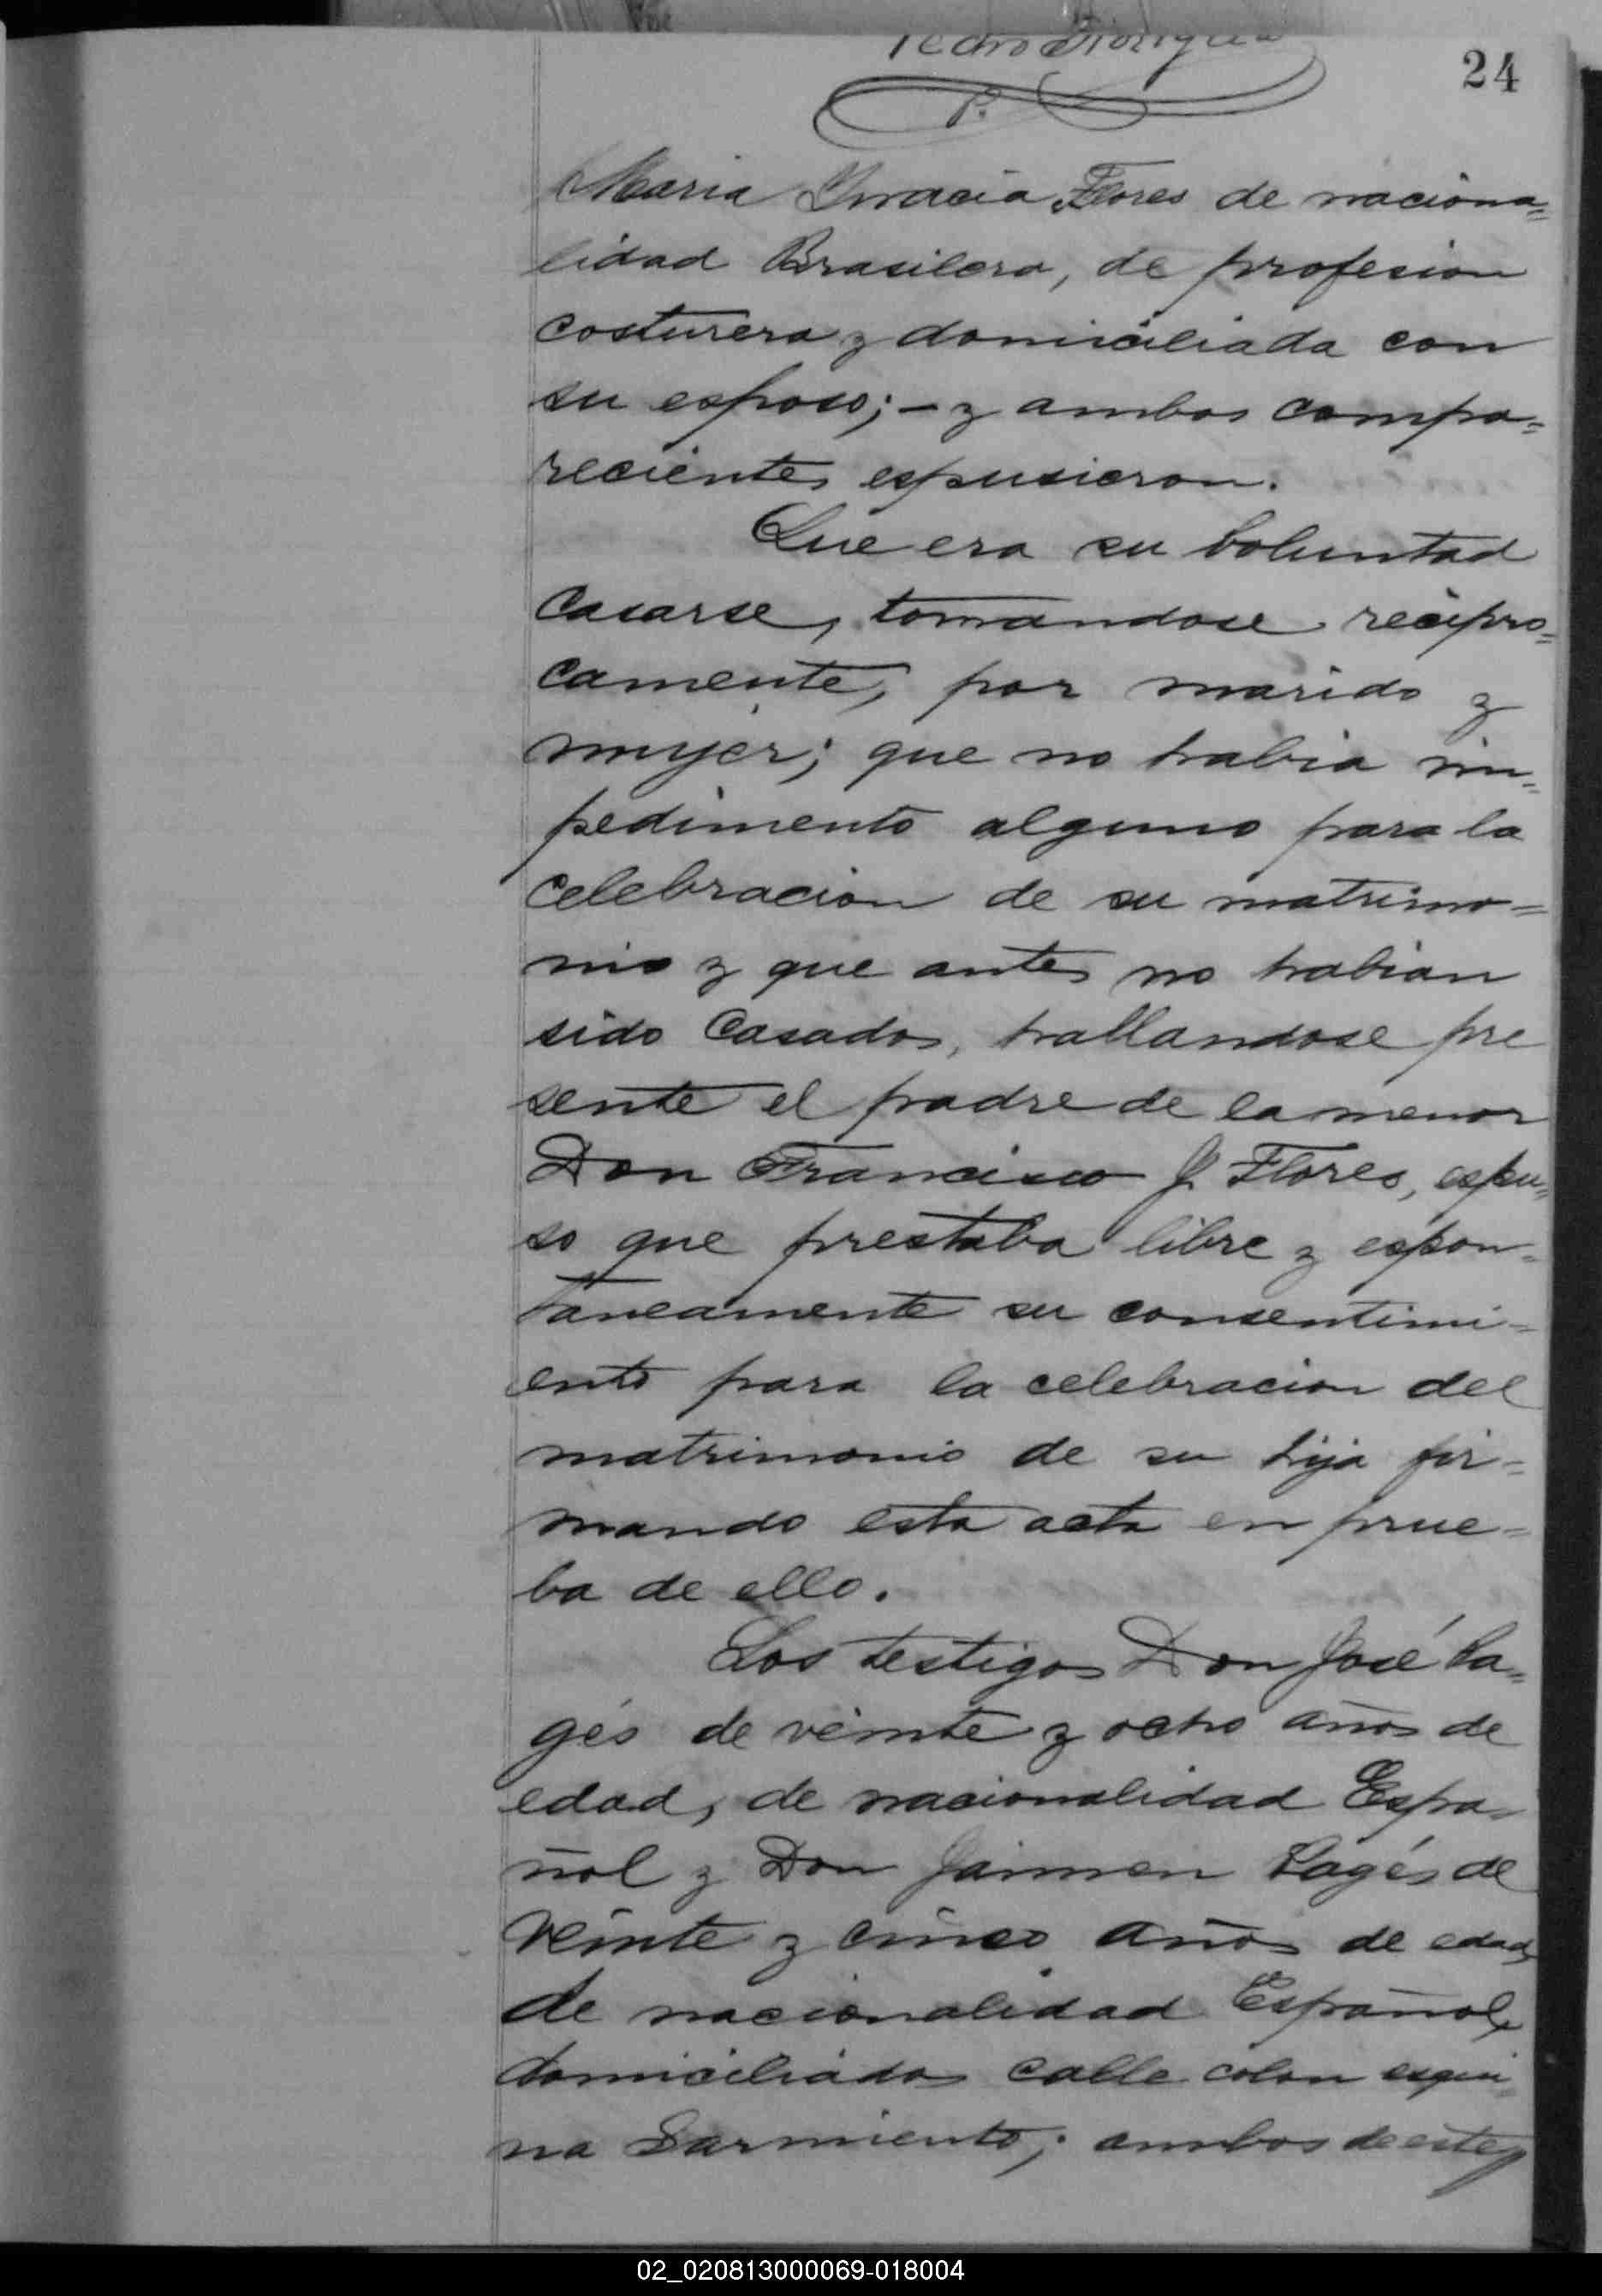 24
P.
Maria Ynacia Flores de naciona=
lidad Brasilera, de profesion
costurera y domiciliada con
su esposo; – y ambos compa=
recientes espusieron.
Que era su boluntad
Casarse, tomandose recipro=
camente, por marido y
mujer; que no habia im=
pedimento alguno para la
celebracion de su matrimo=
nio y que antes no habian
sido Casados, hallandose pre
sente el padre de la menor
Don Francisco J. Flores, espu=
so que prestaba libre y espon=
taneamente su consentimi=
ento para la celebracion del
matrimonio de su hija fir=
mando esta acta en prue=
ba de ello.
Los testigos Don José
de veinte y ocho años de
edad, de nacionalidad Espa=
ñol y Don de
veinte y cinco años de edad,
de nacionalidad Español,
domiciliados calle colon esqui
na Sarmiento; ambos de este
02_020813000069-018004